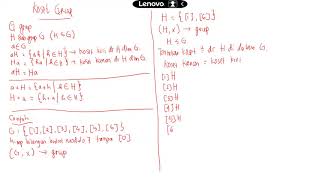 Lenovo
Koset Grup
G grup
H subgrup G (H ≤ G)
a ∈ G
aH = {ah | h ∈ H} → koset kiri dr H dlm G
Ha = {ha | h ∈ H} → koset kanan dr H dlm G
aH = Ha
a + H = {a+h | h ∈ H}
H + a = {h+a | h ∈ H}
Contoh
G = {[1], [2], [3], [4], [5], [6]}
himp bilangan bulat modulo 7 tanpa [0]
(G, x) → grup
H = {[1], [6]}
(H, x) → grup
H ≤ G
Tentukan koset dr H di dalam G.
koset kanan = koset kiri
[1] H
[2] H
[3] H
[4] H
[5] H
[6